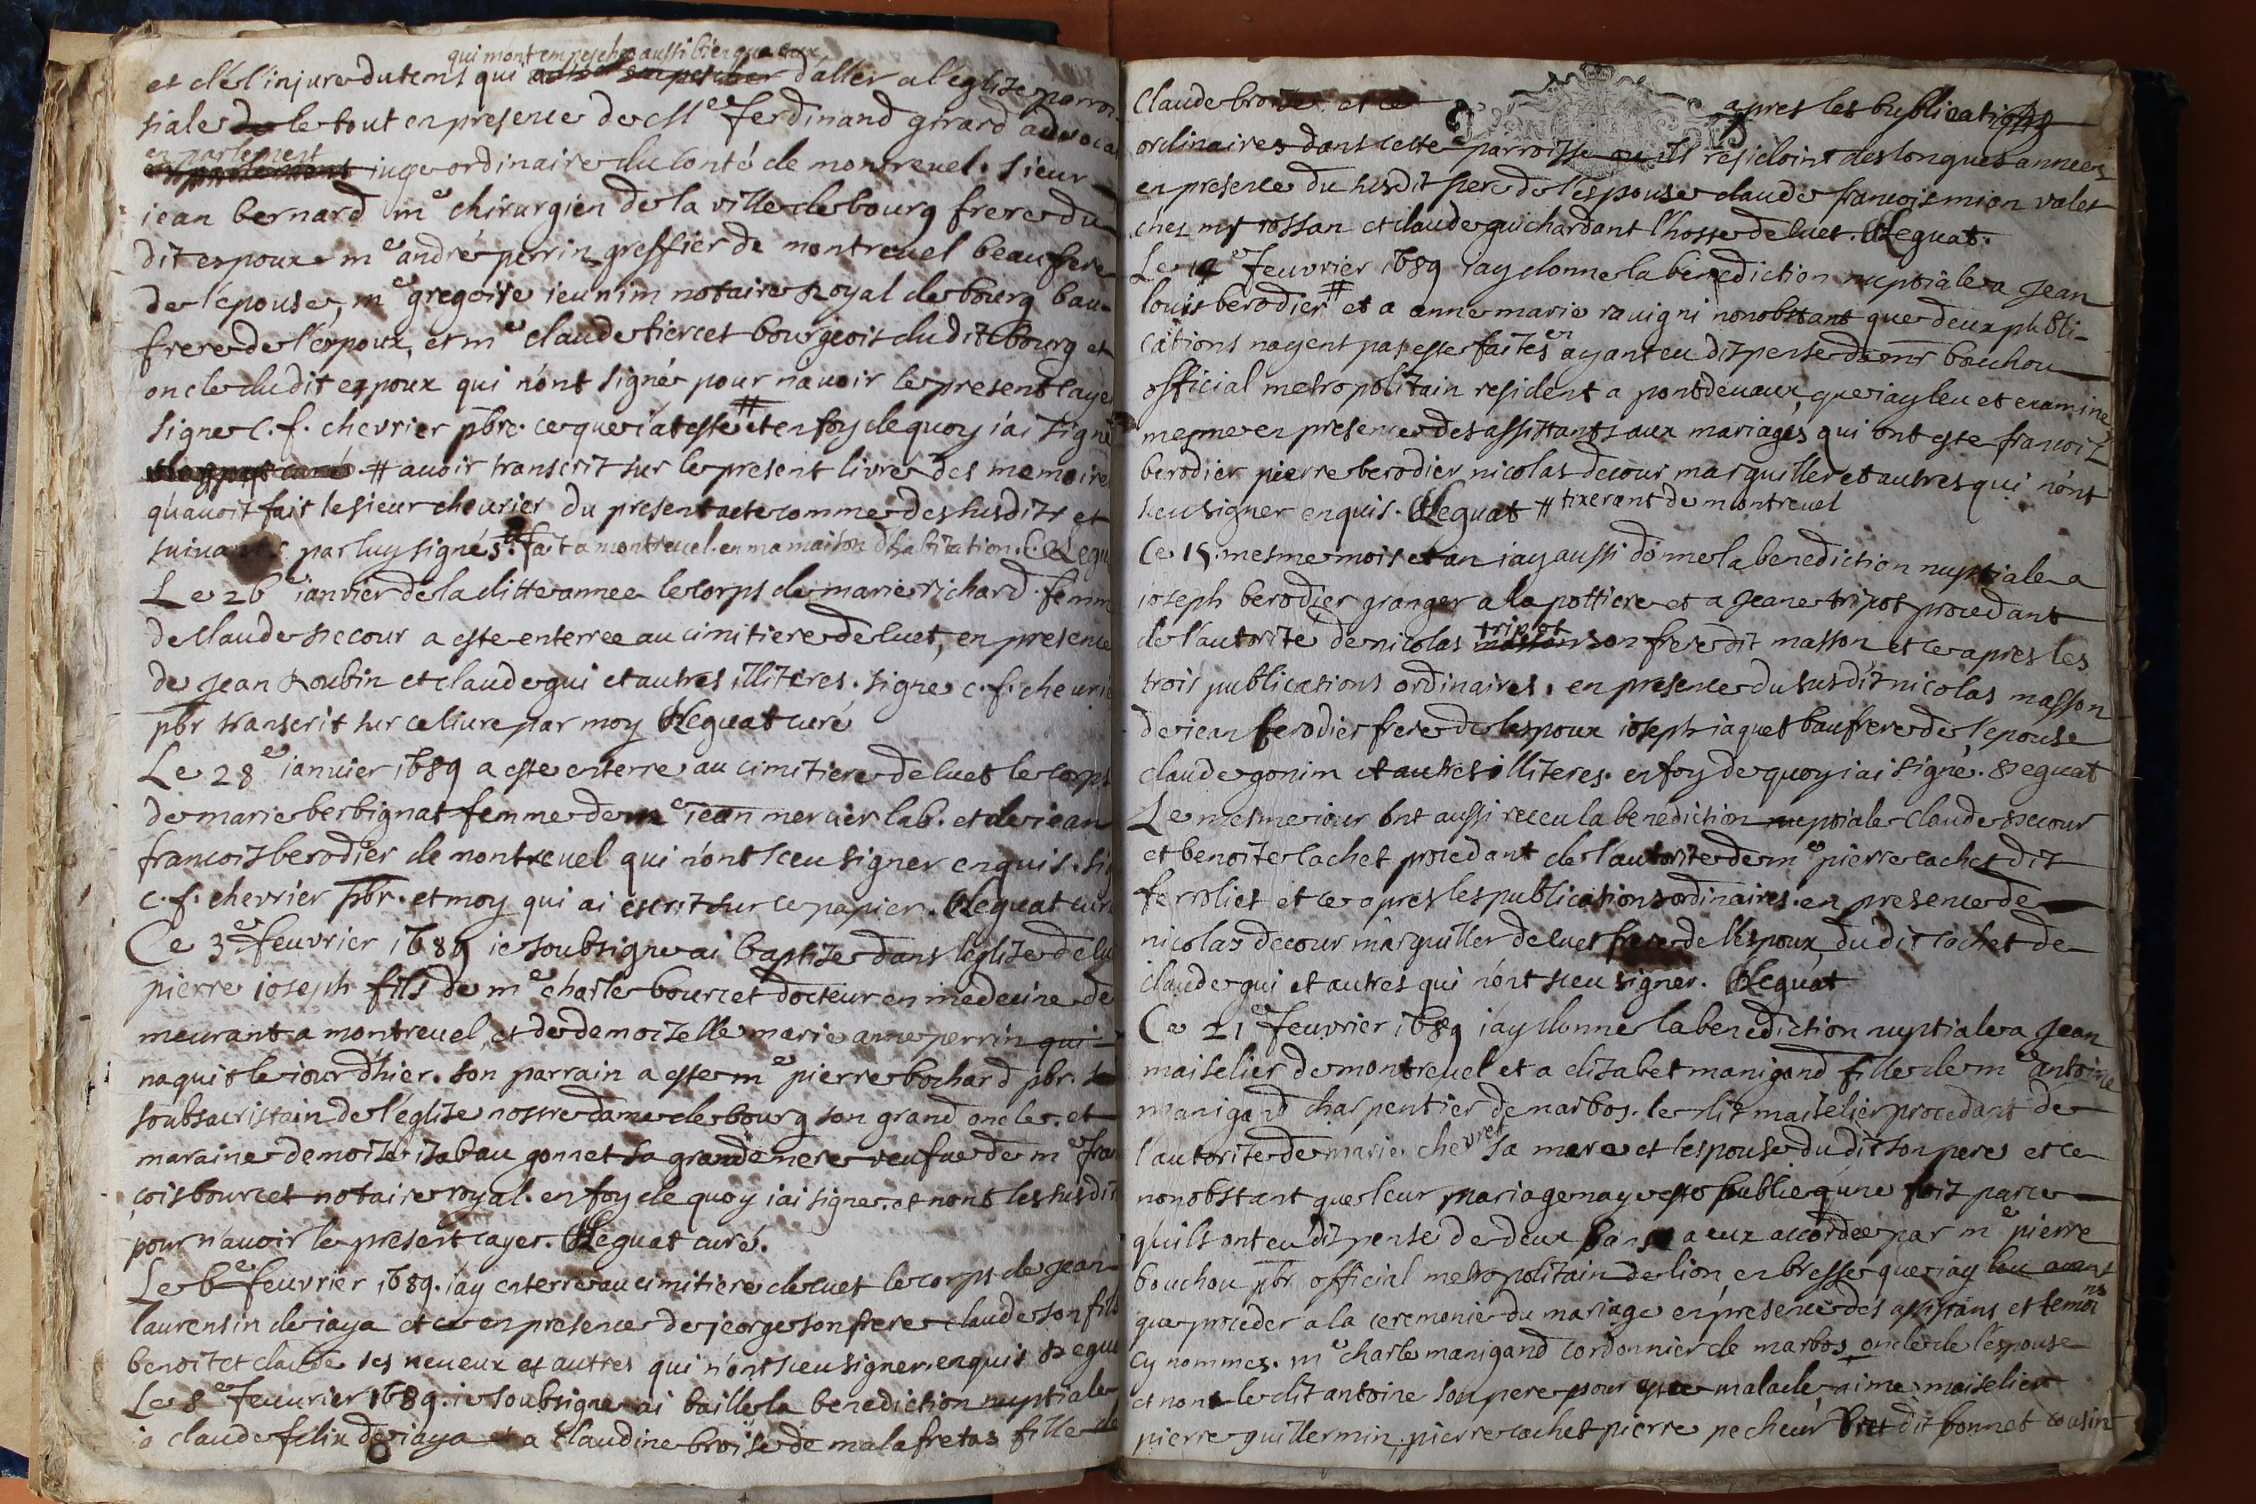 qui mont empesché aussi bien que eux
et de l'injure du tems qui d'aller a l'eglise parro
siale le tout en presence de Mre ferdinand girard advocat
en parlement
iuge ordinaire du Conté de montrevel. sieur
iean bernard me chirurgien de la ville de bourg frere du
dit espoux me andré perrin greffier de montrevel beaufrere
de l'epouse, me gregoire ieunim notaire Royal de bourg bau
frere de l'espoux, et me claude tiercet bourgeois dudit bourg et
oncle dudit espoux qui n'ont signé pour n'avoir le present caye
signe C. f. chevrier pbre. ce que i'ateste # et en foy de quoy i'ai signé
# avoir transcrit sur le present livre des memoire
qu'avoit fait le sieur chevrier du present acte comme des susdits et
suivants par luy signés. fait a montrevel. en ma maison d'habitation.
Le 26e ianvier de la ditte annee le corps de marie richard femm
de claude decour a este enterree au cimitiere de luet, en presence
de Jean Roubin et claude gui et autres illiteres. signe c. f. chevrie
pbr transcrit sur ce livre par moy Reguat curé
Le 28e ianvier 1689 a este enterre au cimitiere de luet le corps
de marie berbignat femme de me iean mercier lab. et de iean
francois berodier de montrevel qui n'ont sceu signer enquis. si
c. f. chevrier pbr. et moy qui ai escrit sur ce papier. Reguat curé
Ce 3e feuvrier 1689 ie soubsigne ai baptise dans l'eglise de lu
pierre ioseph fils de me charle bourcet docteur en medecine de
meurant a montrevel, et de demoiselle marie anne perrin qui
naquit le iour d'hier. son parrain a este me pierre bochard pbr.
soubsacristain de l'eglise nostre dame de bourg son grand oncle. et
maraine demoise isabau gonnet sa grande mere veufue de me fran
çois bourcet notaire royal. en foy de quoy i'ai signe. et n'ont les susdit
pour n'avoir le present cayer. Reguat curé.
Le 6e feuvrier 1689. i'ay enterré au cimitiere de luet le corps de Jean
laurensin de iaya et ce en presence de jeorge son frere claude son fils
benoit et claude ses neveux et autres qui n'ont sceu signer enquis Regua
Le 8e feuvrier 1689. ie soubsigne ai baillé la benediction nuptiale
a claude felix de iaya et a Claudine broise de malafretas fille de
Claude broise apres les publications
ordinaires dans cette parroisse ou ils residoint des longues années
en presence du susdit pere de l'espouse claude francois mion valet
ches mr rossan et claude guichardant l'hoste de luet. Reguat.
Le 12e feuvrier 1689 i'ay donne la benediction nuptiale a Jean
louis berodier # et a anne marie ravigni nonobstant que deux publi-
cations n'ayent pas este faites en ayant eu dispense de mr bouchou
official metropolitain resident a pontdevaux, que i'ay leu et examine
mesme en presence des assistants aux mariages qui ont este francois
berodier pierre berodier nicolas decour marguiller et autres qui n'ont
sceu signer enquis. Reguat # tixerant de montrevel
Ce 15. mesme mois et an i'ay aussi donne la benediction nuptiale a
ioseph berodier granger a la pottiere et a Jeane tripot procedant
de l'autorite de nicolas tripot son frere dit masson et ce apres les
trois publications ordinaires. en presence du susdit nicolas masson
de iean berodier frere de l'espoux ioseph iaquet baufrere de l'epouse
claude gonin et autres illiteres. en foy de quoy i'ai signe. Reguat
Le mesme iour ont aussi receu la benediction nuptiale claude decour
et benoite cachet procedant de l'autorite de me pierre cachet dit
ferroliet et ce apres les publications ordinaires. en presence de
nicolas decour marguiller de luet frere de l'espoux, dudit cachet de
claude gui et autres qui n'ont sceu signer. Reguat
Ce 21e feuvrier 1689 i'ay donne la benediction nuptiale a Jean
maiselier de montrevel et a elizabet manigand fille de me antoine
manigand charpentier de marbos. le dit maiselier procedant de
l'autorite de marie chevret sa mere et l'espouse du dit son pere et ce
nonobstant que leur mariage n'aye este publie qu'une fois parce
qu'ils ont eu dispense de deux bans a eux accordee par me pierre
bouchou pbr official metropolitain de lion en bresse que i'ay leu avant
que proceder a la ceremonie du mariage en presence des assistans et temoins
cy nommes. me charle manigand cordonnier de marbos oncle de l'espouse
et non le dit antoine son pere pour estre malade aime maiselier
pierre guillermin pierre cachet pierre pecheur dit bonnet cousin